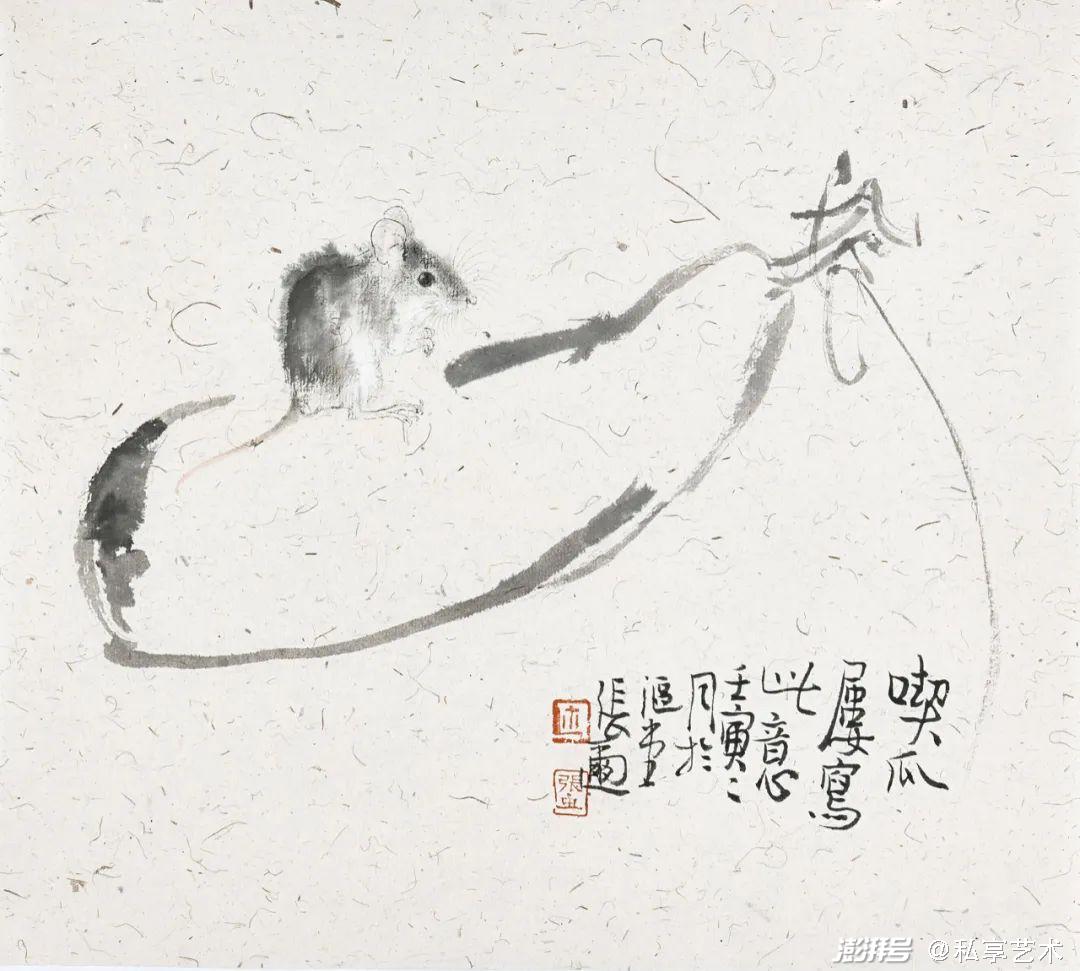 喫瓜
屢寫
此意
壬寅二
月於
漚堂
張
張
澎湃号 @私享艺术